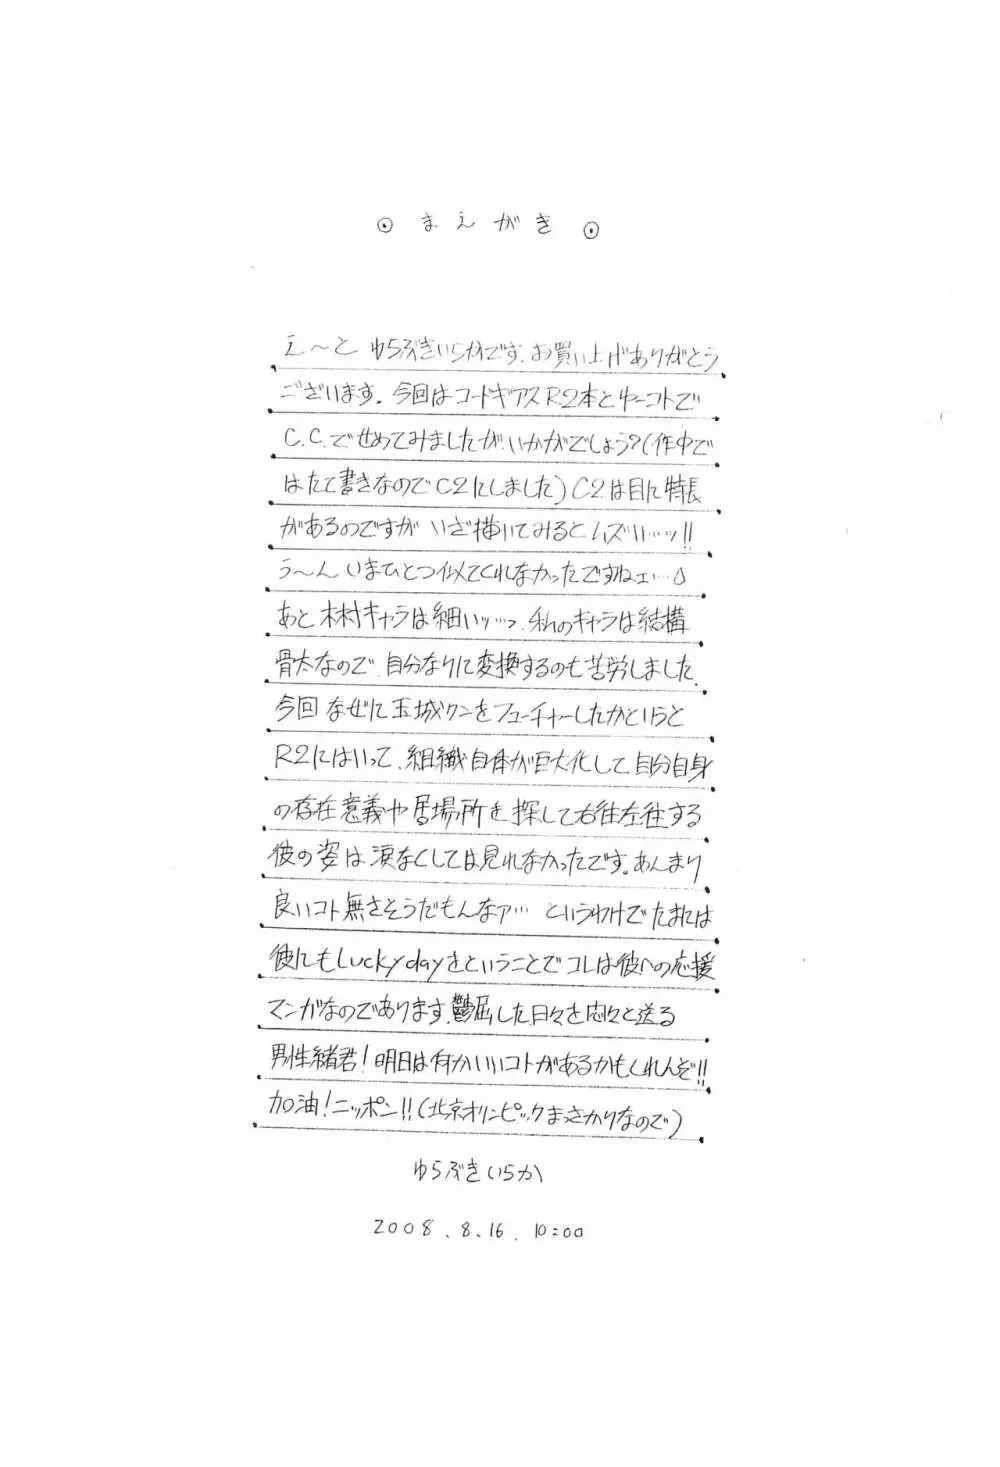 ⊙ まえがき ⊙
え〜と ゆらぶきいらかです. お買い上げありがとう
ございます。今回はコードギアスR2本とゆーコトで
C.C.でせめてみましたが、いかがでしょう?(作中で
はたて書きなのでC2にしました)C2は目に特長
があるのですが いざ描いてみるとムズい…ッ!!
う〜ん いまひとつ似てくれなかったですねェ…
あと 木村キャラは細いッ…っ. 私のキャラは結構
骨太なので、自分なりに変換するのも苦労しました.
今回 なぜに玉城クンをフューチャーしたかというと
R2にはいって、組織自体が巨大化して自分自身
の存在意義や居場所を 探して右往左往する
彼の姿は 涙なくしては見れなかったです。あんまり
良いコト無さそうだもんなァ… というわけで たまには
彼にもLucky dayをということで コレは彼への応援
マンガなのであります.鬱屈した日々を悶々と送る
男性緒君!明日は何かいいコトがあるかもしれんぞ!!
加油!ニッポン!!(北京オリンピックまっさかりなので)
ゆらぶきいらか
2008.8.16. 10:00